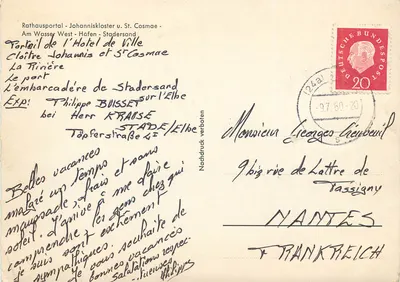 Rathausportal - Johanniskloster u. St. Cosmae -
Am Wasser West - Hafen - Stadersand
Portail de l'Hotel de Ville
Cloître Johannis et St Cosmae
La Rivière
Le port
L'embarcadère de Stadersand
sur l'Elbe
Exp: Philippe BUISSET
bei Herr KRAUSE
STADE/Elbe
Töpferstraße 4
Belles vacances
malgré un temps
maussade, frais et sans
soleil. J'arrive à me faire
comprendre les gens chez qui
je suis sont extrêment
sympathiques. Je vous souhaite de
bonnes vacances
Salutations respec-
tueuses
Philippe
Nachdruck verboten
DEUTSCHE BUNDESPOST
20
(24a)
Monsieur Georges
9 bis rue de Lattre de
Tassigny
NANTES
FRANKREICH